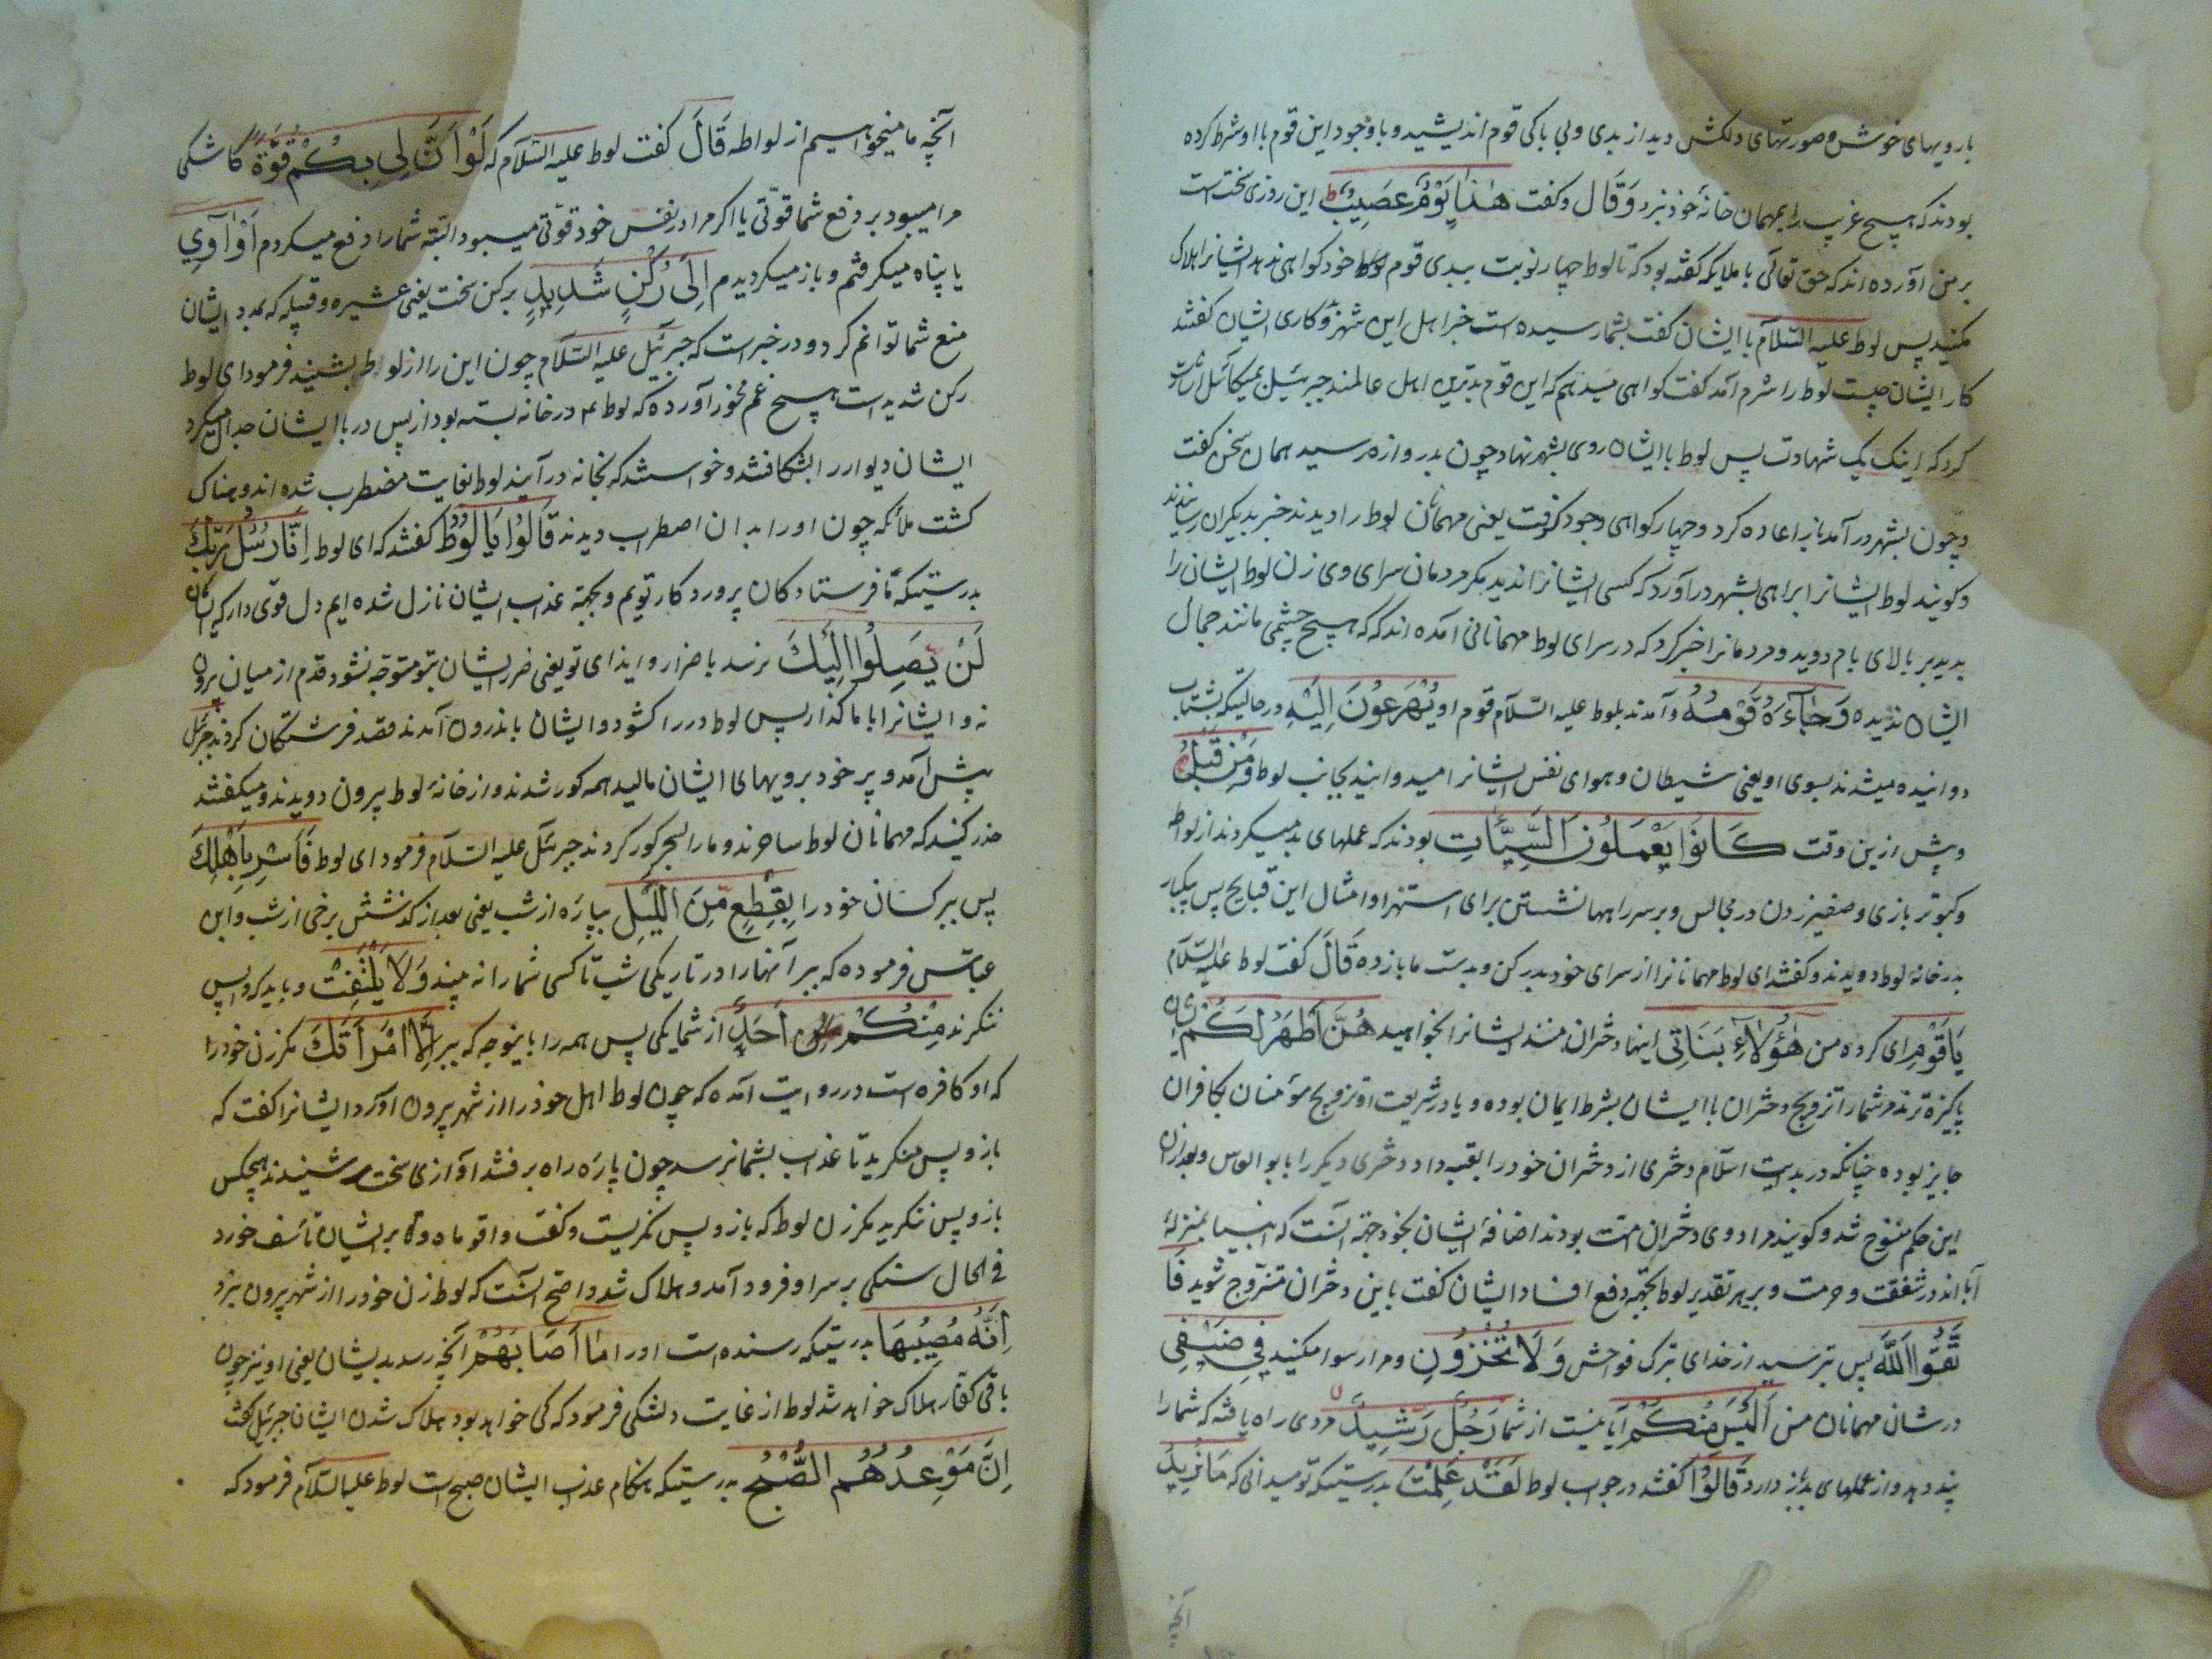 با رویهای خوش و صورتهای دلکش دید از بدی و بی باکی قوم اندیشید و با وجود این قوم با او شرط کرده
بودند که هیچ غریب را بمهمان خانهٔ خود نبرد وَقَالَ و گفت هٰذَا يَوْمٌ عَصِيبٌ ط این روزی سخت است
بر من آورده اند که حق تعالی با ملایکه گفته بود که تا لوط چهار نوبت ببدی قوم خود گواهی ندهد ایشانرا هلاک
مکنید پس لوط علیه السّلام با ایشان گفت بشما رسیده است خبر اهل این شهر و کاری ایشان گفتند
کار ایشان چیست لوط را شرم آمد گفت گواهی میدهم که این قوم بدترین اهل عالمند جبرئیل بمیکائل اشارت
کرد که اینک یک شهادت پس لوط با ایشان روی بشهر نهاد و چون بدروازه رسید همان سخن گفت
و چون بشهر درآمد باز اعاده کرد و چهار گواهی وجود گرفت یعنی مهمانان لوط را دیدند خبر بدیگران رسانیدند
و گویند لوط ایشانرا براهی بشهر درآورد که کسی ایشانرا ندید مگر مردمان سرای وی زن لوط ایشان را
بدید بر بالای بام دوید و مردمانرا خبر کرد که در سرای لوط مهمانانی آمده اند که هیچ چشمی مانند جمال
ایشان ندیده وَجَاءَهُ قَوْمُهُ و آمدند بلوط علیه السّلام قوم او يُهْرَعُونَ اِلَيْهِ در حالتیکه بشتاب
دوانیده میشدند بسوی او یعنی شیطان و هوای نفس ایشانرا میدوانید بجانب لوط وَمِنْ قَبْلُ
و پیش ازین وقت كَانُوا يَعْمَلُونَ السَّيِّئَاتِ بودند که عملهای بد میکردند از لواطه
و کبوتر بازی و صفیر زدن در مجالس و بر سر راهها نشستن برای استهزا و امثال این قبایح پس بیکبار
بدر خانهٔ لوط دویدند و گفتند ای لوط مهمانانرا از سرای خود بدر کن و بدست ما بازده قَالَ گفت لوط علیه السّلام
يَا قَوْمِ ای گروه من هٰؤُلَاءِ بَنَاتِي اینها دختران منند ایشانرا بخواهید هُنَّ اَطْهَرُ لَكُمْ ایشان
پاکیزه ترند مر شما را تزویج دختران با ایشان بشرط ایمان بوده و یا در شریعت او تزویج مؤمنان بکافران
جایز بوده چنانکه در بدایت اسلام دختری از دختران خود را بعتبه داد و دختری دیگر را بابو العاص و بعد ازان
این حکم منسوخ شد و گویند مراد وی دختران امّت بودند اضافهٔ ایشان بخود جهة آنست که انبیا بمنزلهٔ
آبا اند در شفقت و حرمت و بر هر تقدیر لوط بجهة دفع افساد ایشان گفت باین دختران متزوّج شوید فَا
تَّقُوا اللّٰهَ پس بترسید از خدای بترک فواحش وَلَا تُخْزُونِ و مرا رسوا مکنید فِي ضَيْفِي
در شان مهمانان من اَلَيْسَ مِنْكُمْ آیا نیست از شما رَجُلٌ رَشِيدٌ مردی راه یافته که شما را
پند دهد و از عملهای بد باز دارد قَالُوا گفتند در جواب لوط لَقَدْ عَلِمْتَ بدرستیکه تو میدانی که مَا نُرِيدُ
آنچه
آنچه ما میخواهیم از لواطه قَالَ گفت لوط علیه السّلام که لَوْ اَنَّ لِي بِكُمْ قُوَّةً کاشکی
مرا میبود بر دفع شما قوّتی یا اگر مرا در نفس خود قوّتی میبود البتّه شما را دفع میکردم اَوْ اٰوِي
یا پناه میگرفتم و باز میگردیدم اِلٰى رُكْنٍ شَدِيدٍ برکن سخت یعنی عشیره و قبیله که بمدد ایشان
منع شما توانم کرد و در خبر است که جبرئیل علیه السّلام چون این را از لوط بشنید فرمود ای لوط
رکن شدید است هیچ غم مخور آورده که لوط ع در خانه بسته بود از پس در با ایشان جدال میکرد
ایشان دیوار را بشکافتند و خواستند که بخانه درآیند لوط بغایت مضطرب شده اندوهناک
گشت ملائکه چون او را بدان اضطراب دیدند قَالُوا يَا لُوطُ گفتند که ای لوط اِنَّا رُسُلُ رَبِّكَ
بدرستیکه ما فرستادگان پروردگار توییم و بجهة عذاب ایشان نازل شده ایم دل قوی دار که ایشان
لَنْ يَصِلُوا اِلَيْكَ نرسد باضرار و ایذای تو یعنی ضرر ایشان بتو متوجّه نشود قدم از میان بیرون
نه و ایشانرا با ما گذار پس لوط در را گشود و ایشان باندرون آمدند قصد فرشتگان کردند جبرئل
پیش آمد و پر خود برویهای ایشان مالید همه کور شدند و از خانهٔ لوط بیرون دویدند و میگفتند
حذر کنید که مهمانان لوط ساحرند و ما را بسحر کور کردند جبرئیل علیه السّلام فرمود ای لوط فَاَسْرِ بِاَهْلِكَ
پس ببر کسان خود را بِقِطْعٍ مِنَ اللَّيْلِ بپارهٔ از شب یعنی بعد از گذشتن برخی از شب و ابن
عبّاس فرموده که ببر آنها را در تاریکی شب تا کسی شما را نه بیند وَلَا يَلْتَفِتْ و باید که واپس
ننگرند مِنْكُمْ اَحَدٌ از شما یکی پس همه را باینوجه که ببر اِلَّا امْرَاَتَكَ مگر زن خود را
که او کافره است در روایت آمده که چون لوط اهل خود را از شهر بیرون آورد ایشانرا گفت که
باز و پس منگرید تا عذاب بشما نرسد چون پارهٔ راه برفتند آوازی سخت شنیدند هیچکس
باز و پس ننگرید مگر زن لوط که باز و پس نگریست و گفت وا قوماه و بر ایشان تأسّف خورد
فی الحال سنگی بر سر او فرود آمد و هلاک شد و اصحّ آنست که لوط زن خود را از شهر بیرون نبرد
اِنَّهُ مُصِيبُهَا بدرستیکه رسنده است او را مَا اَصَابَهُمْ آنچه رسد بدیشان یعنی او نیز چون
باقی کفّار هلاک خواهد شد لوط از غایت دلتنگی فرمود که کی خواهد بود هلاک شدن ایشان جبرئیل گفت
اِنَّ مَوْعِدَهُمُ الصُّبْحُ بدرستیکه هنگام عذاب ایشان صبح است لوط علیه السّلام فرمود که